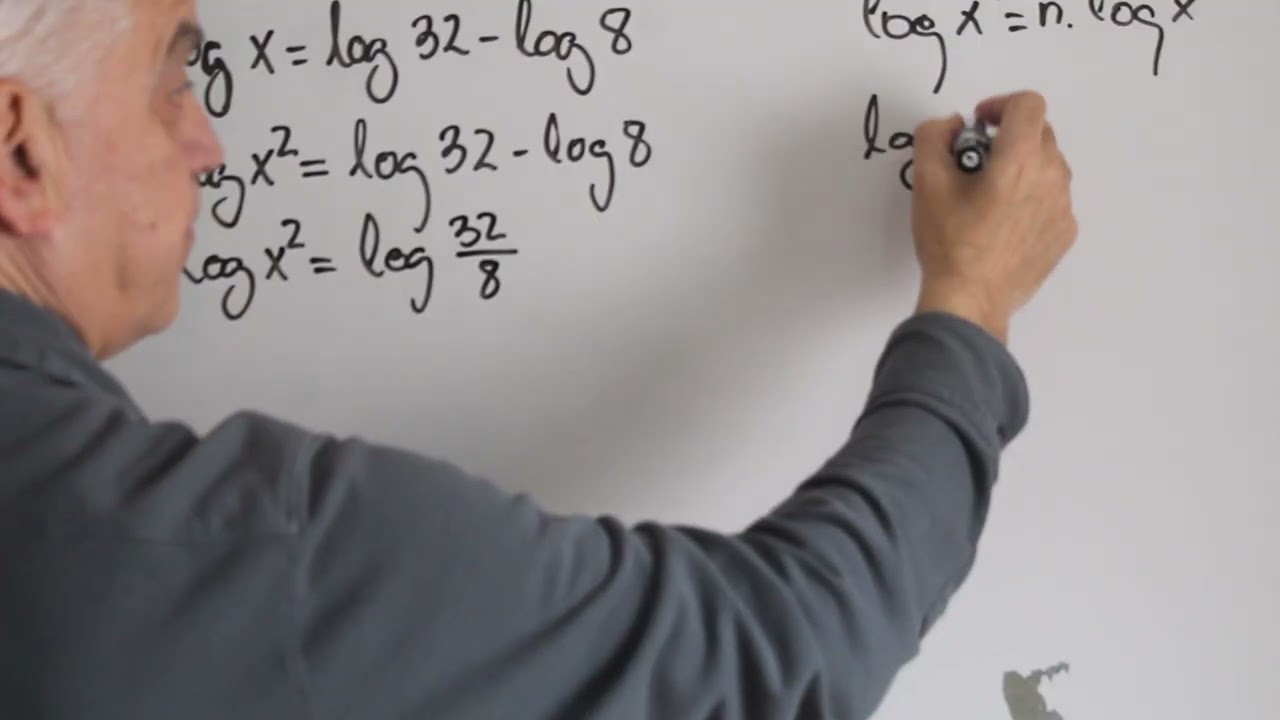 og x = log 32 - log 8
log x² = log 32 - log 8
log x² = log 32/8
log x = n. log x
log